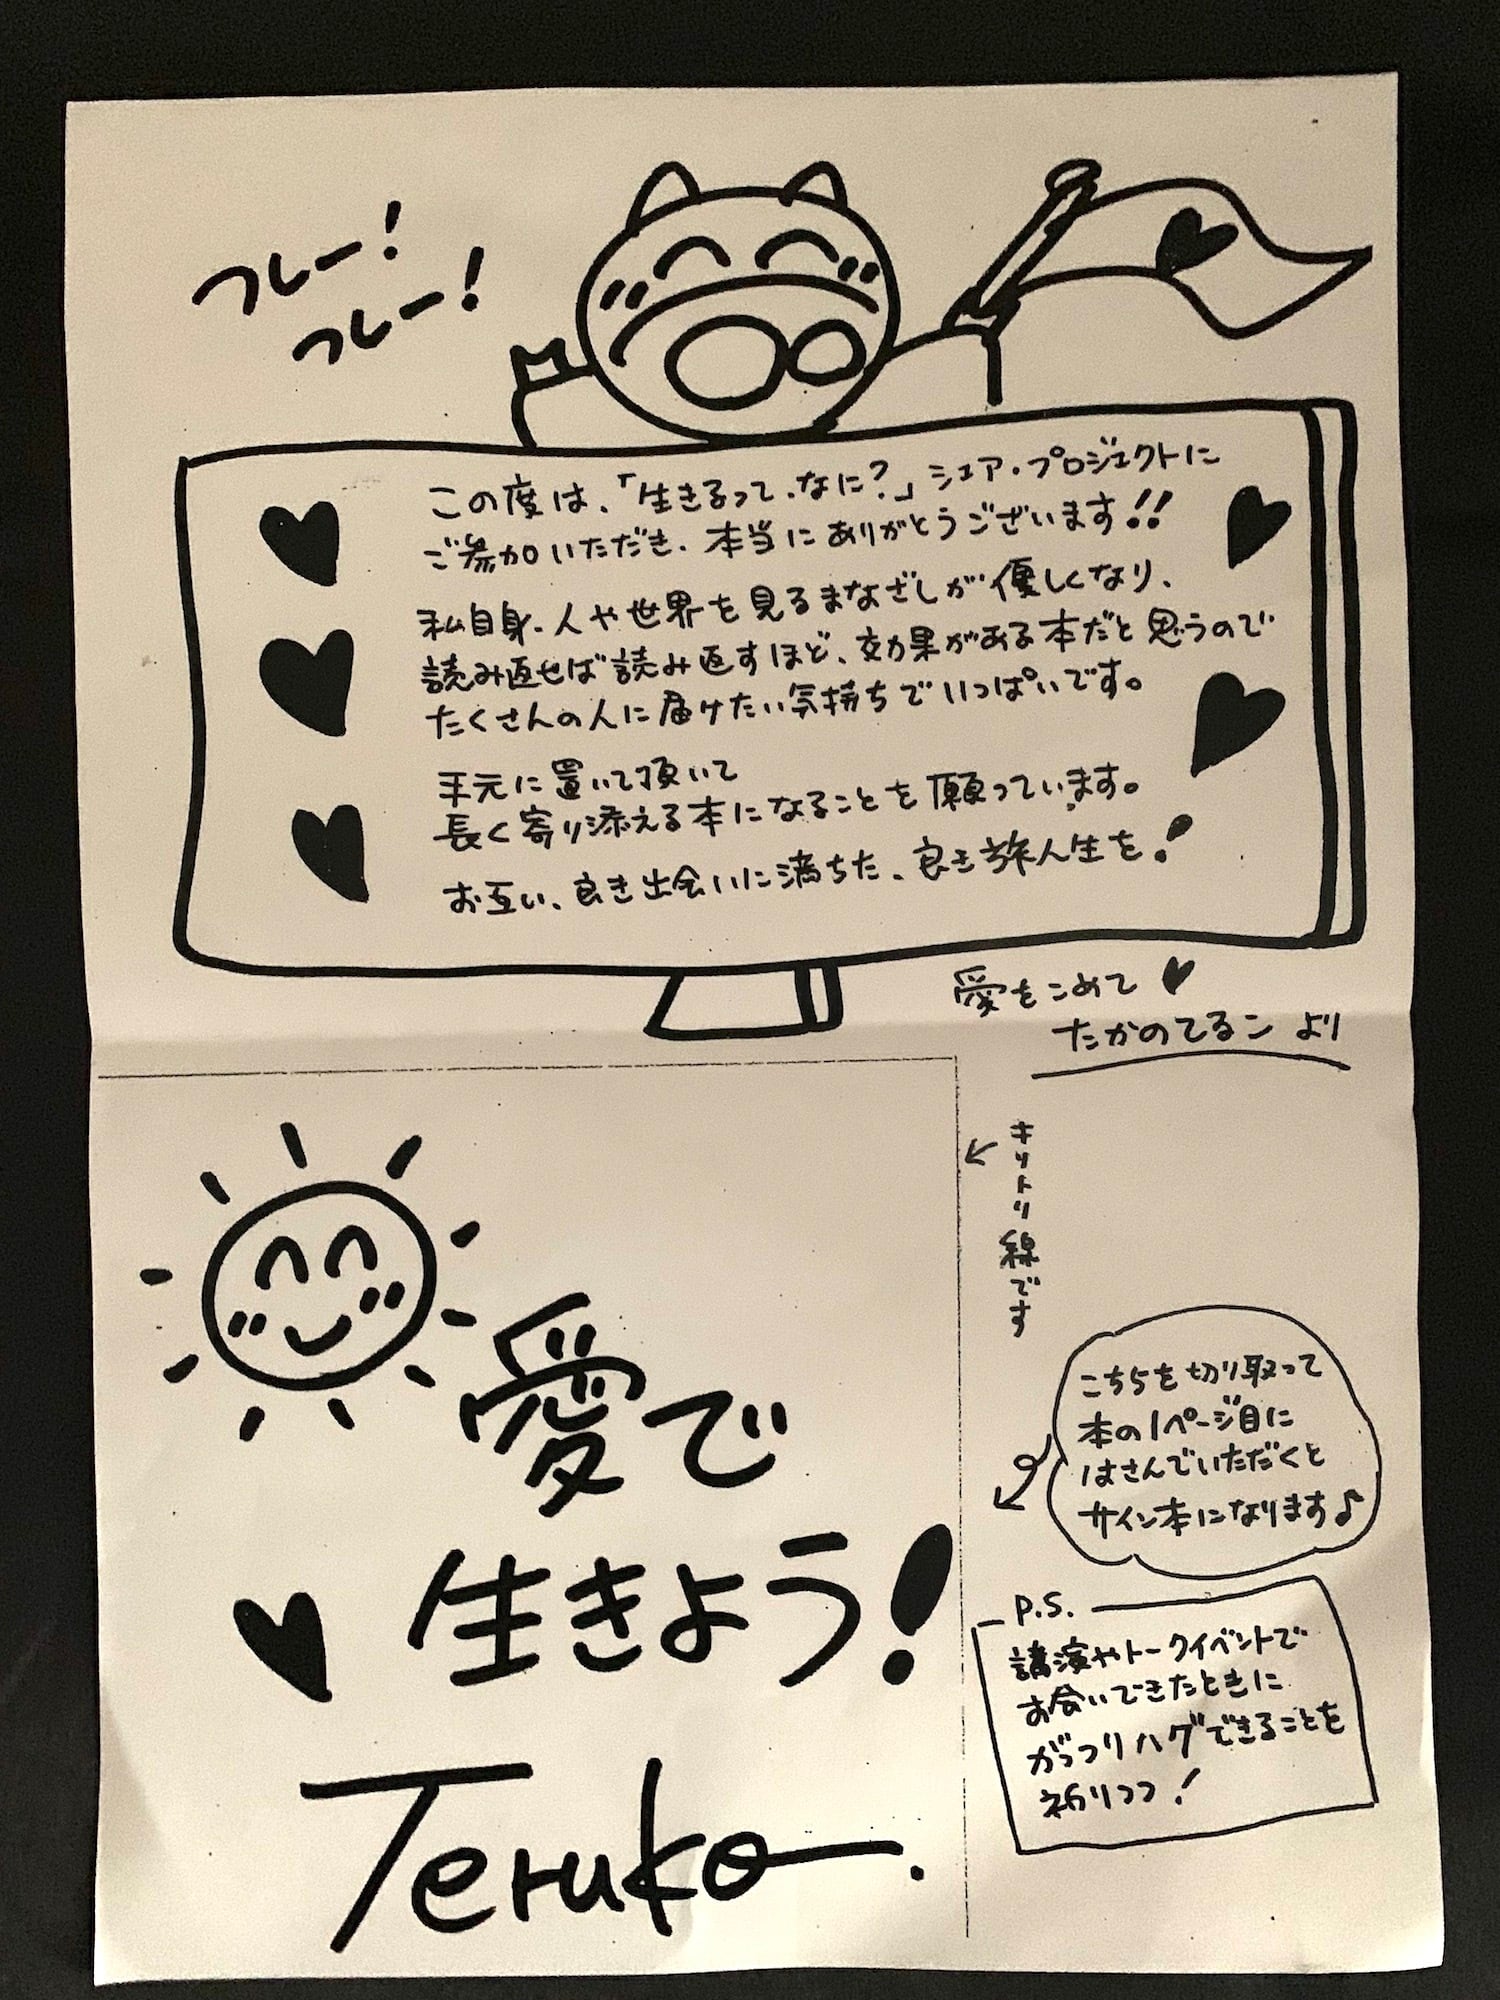 フレー!
フレー!
この度は、「生きるって、なに?」シェア・プロジェクトに
ご参加いただき、本当にありがとうございます!!
私自身、人や世界を見るまなざしが優しくなり、
読み返せば読み返すほど、効果がある本だと思うので
たくさんの人に届けたい気持ちでいっぱいです。
手元に置いて頂いて
長く寄り添える本になることを願っています。
お互い、良き出会いに満ちた、良き旅人生を!
愛をこめて♥
たかのてるこ より
キリトリ線です
愛で
生きよう!
Teruko.
こちらを切り取って
本の1ページ目に
はさんでいただくと
サイン本になります♪
P.S.
講演やトークイベントで
お会いできたときに
がっつりハグできることを
祈りつつ!